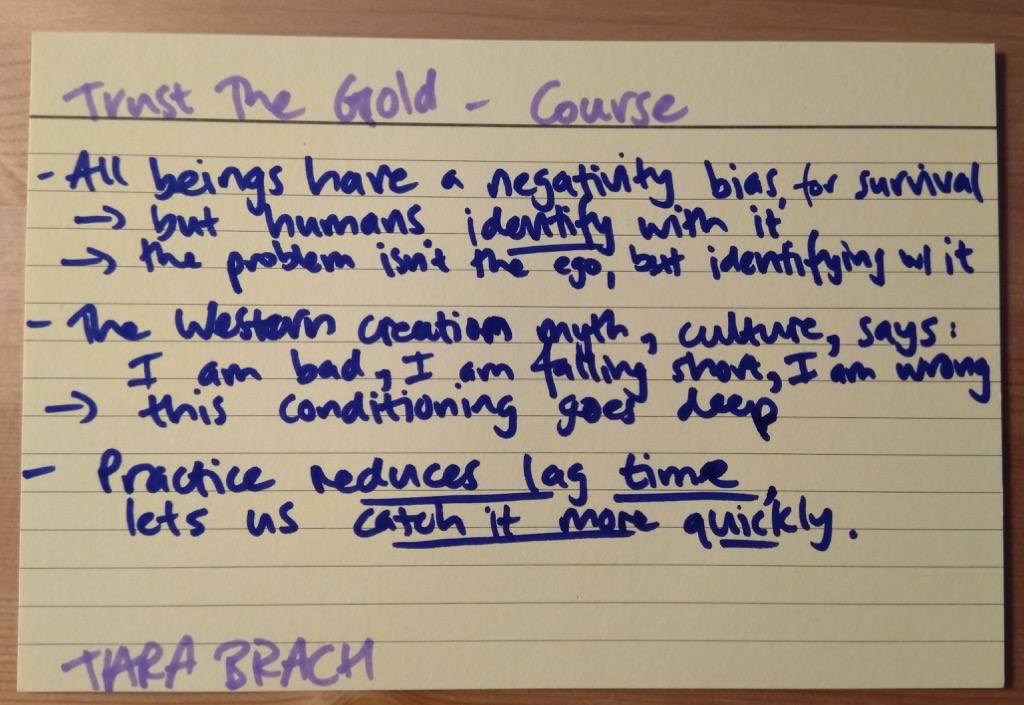 Trust The Gold - Course
- All beings have a negativity bias, for survival
→ but humans identify with it
→ the problem isn't the ego, but identifying w/ it
- The Western creation myth, culture, says:
I am bad, I am falling short, I am wrong
→ this conditioning goes deep
- Practice reduces lag time,
lets us catch it more quickly.
TARA BRACH